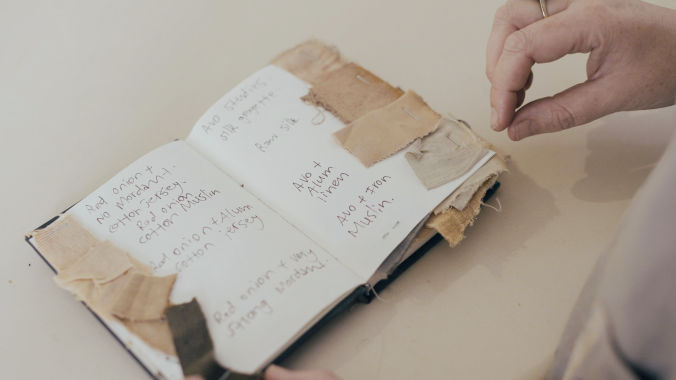 Red onion +
no Mordant.
cotton jersey.
Red onion
cotton Muslin
Red onion + Alum
cotton jersey
Red onion + very
strong Mordant.
Avo studies
silk
Raw silk
Avo +
Alum
linen
Avo + Iron
Muslin.